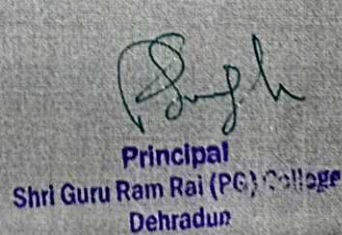 Principal
Shri Guru Ram Rai (PG) College
Dehradun